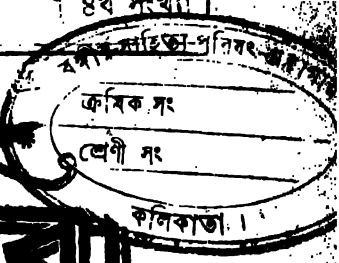 ৪থ সংখ্যা ।
বঙ্গীয়-সাহিত্য-পরিষৎ-গ্রন্থাগার
ক্রমিক সং
শ্রেণী সং
কলিকাতা ।